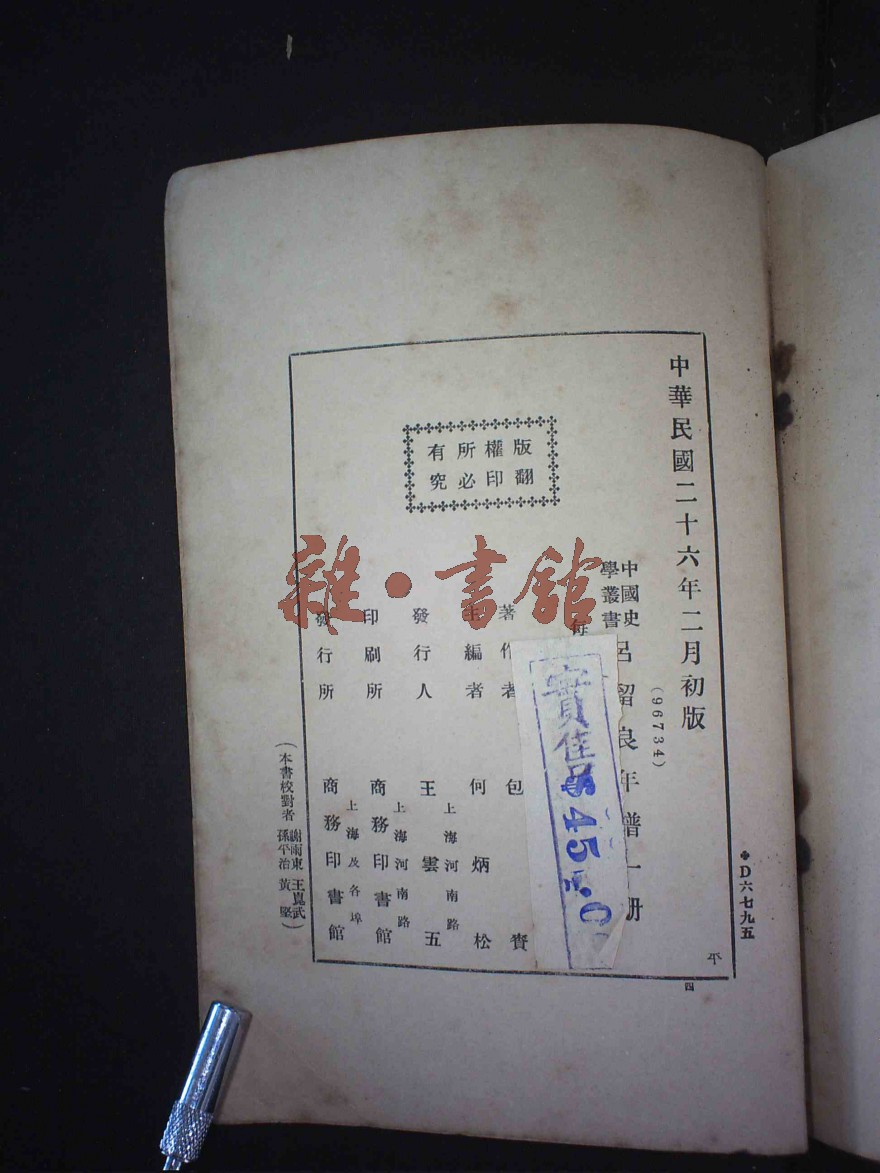 中華民國二十六年二月初版
(96734)
中國史
學叢書
呂留良年譜一冊
每
版權所有
翻印必究
著作者 包賚
主編者 何炳松
上海河南路
發行人 王雲五
上海河南路
印刷所 商務印書館
上海及各埠
發行所 商務印書館
(本書校對者 謝雨東 王崑武
孫平治 黃堅)
D六七九五
平
四
實售
$45.0
雜·書館